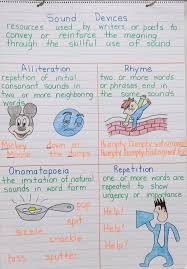 Sound Devices
resources used by writers or poets to
convey or reinforce the meaning
through the skillful use of sound
Alliteration
repetition of initial
consonant sounds in
two or more neighboring
words
Mickey
Mouse
down in
the dumps
Rhyme
two or more words
or phrases end in
the same sounds
Humpty Dumpty sat on a wall
Humpty Dumpty had a great fall
Onomatopoeia
the imitation of natural
sounds in word form
pop
spit
sizzle
crackle
hiss
sputter
Repetition
one or more words are
repeated to show
urgency or importance
Help!
Help!
Help!